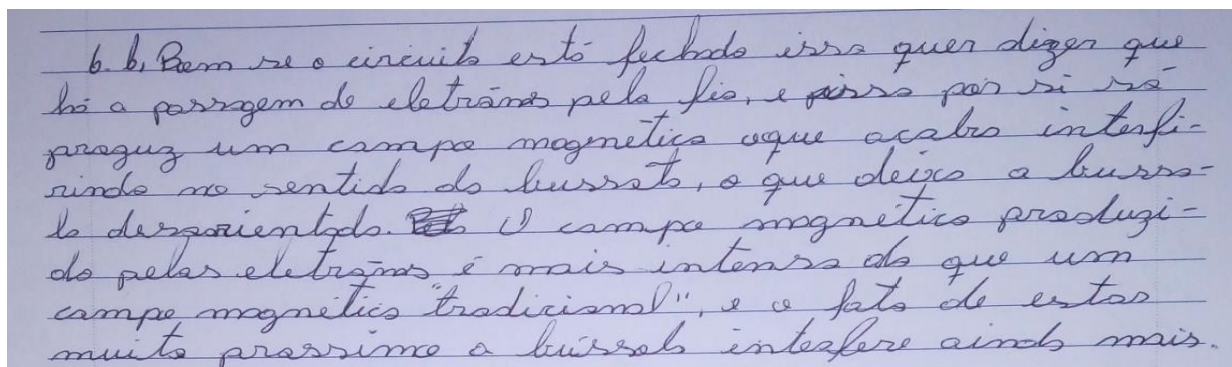 6. b, Bem se o circuito está fechado isso quer dizer que
há a passagem de eletrãns pelo fio, e isso por si só
praguz um campo magnético oque acaba interfi-
rindo no sentido da bussola, o que deixa a busso-
la desorientada. O campo magnético produzi-
do pelos eletrãns é mais intenso do que um
campo magnético "tradicional", e o fato de estar
muito prossimo a bússola interfere ainda mais.